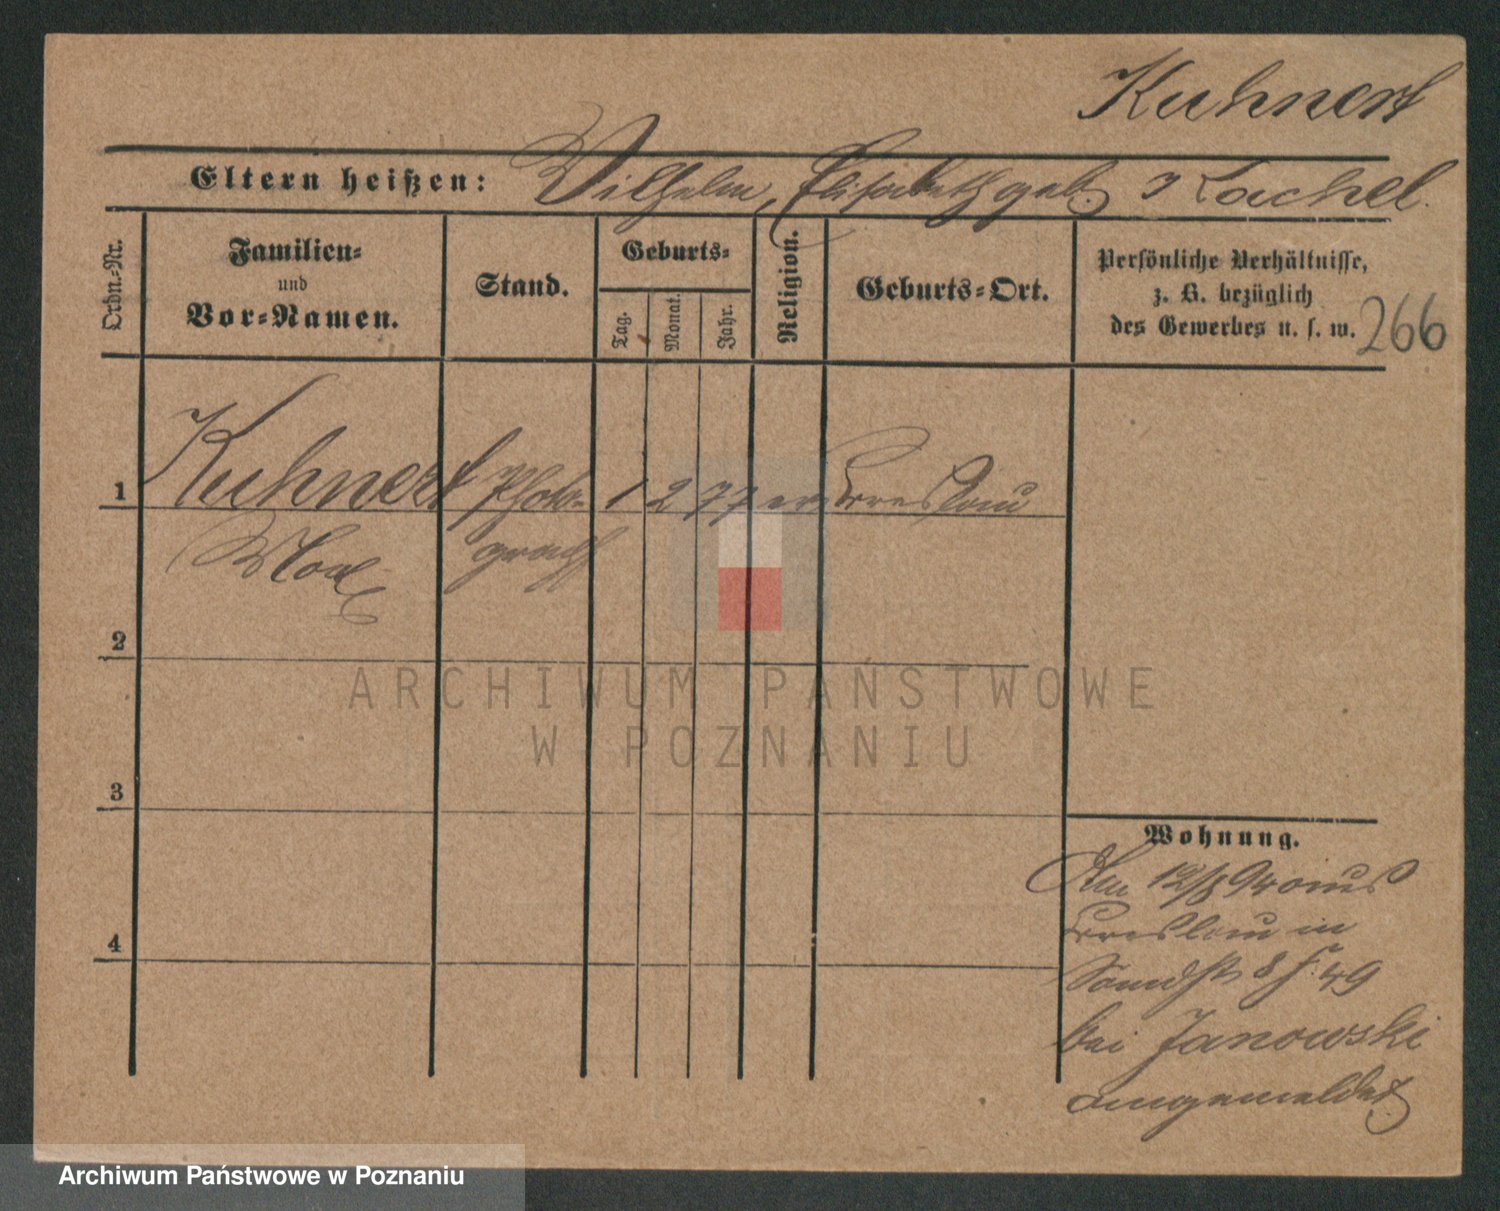 Kuhnert
Eltern heißen: Wilhelm, Elisabeth geb. Rachel.
Ordn.-Nr.
Familien-
und
Vor-Namen.
Stand.
Geburts-
Tag.
Monat.
Jahr.
Religion.
Geburts-Ort.
Persönliche Verhältnisse,
z. B. bezüglich
des Gewerbes u. s. w.
266
1 Kuhnert Photo- 1 2 77 ev Breslau
Max graph
2
3
4
Wohnung.
Den 12/8 94 aus
Breslau in
8 49
bei Janowski
angemeldet
ARCHIWUM PAŃSTWOWE
W POZNANIU
Archiwum Państwowe w Poznaniu